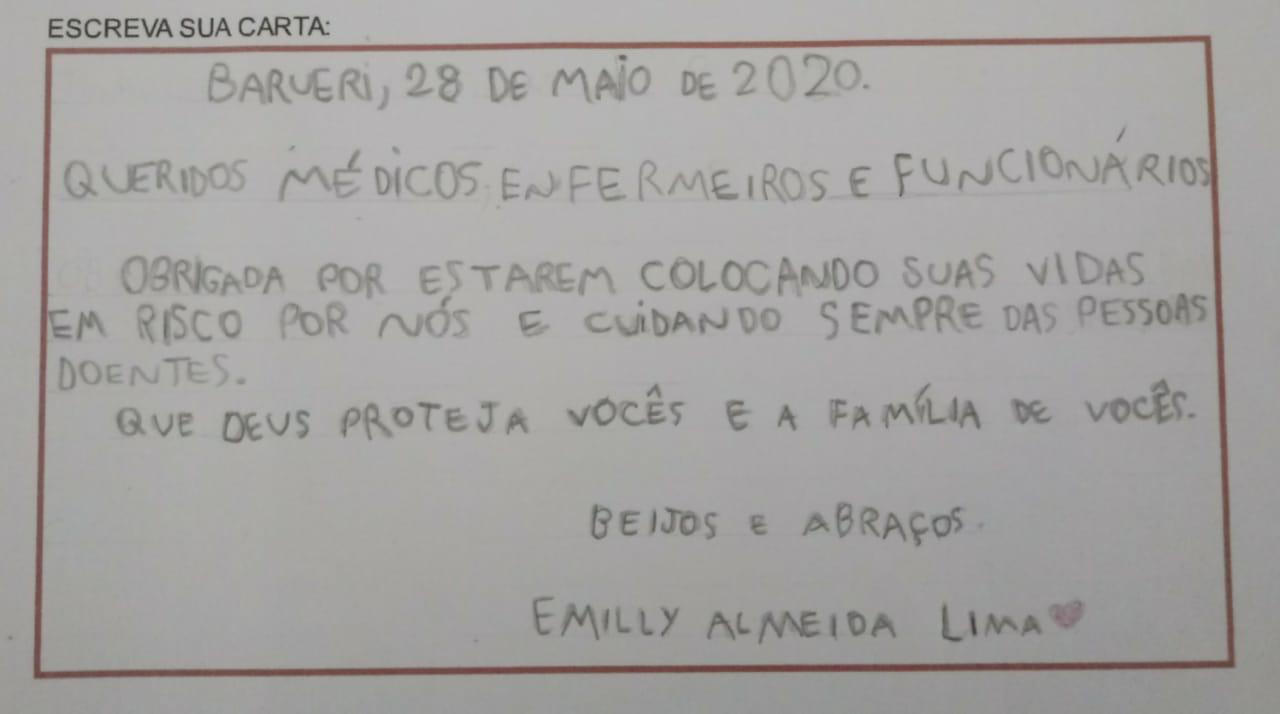 ESCREVA SUA CARTA:
BARUERI, 28 DE MAIO DE 2020.
QUERIDOS MÉDICOS, ENFERMEIROS E FUNCIONÁRIOS
OBRIGADA POR ESTAREM COLOCANDO SUAS VIDAS
EM RISCO POR NÓS E CUIDANDO SEMPRE DAS PESSOAS
DOENTES.
QUE DEUS PROTEJA VOCÊS E A FAMÍLIA DE VOCÊS.
BEIJOS E ABRAÇOS.
EMILLY ALMEIDA LIMA